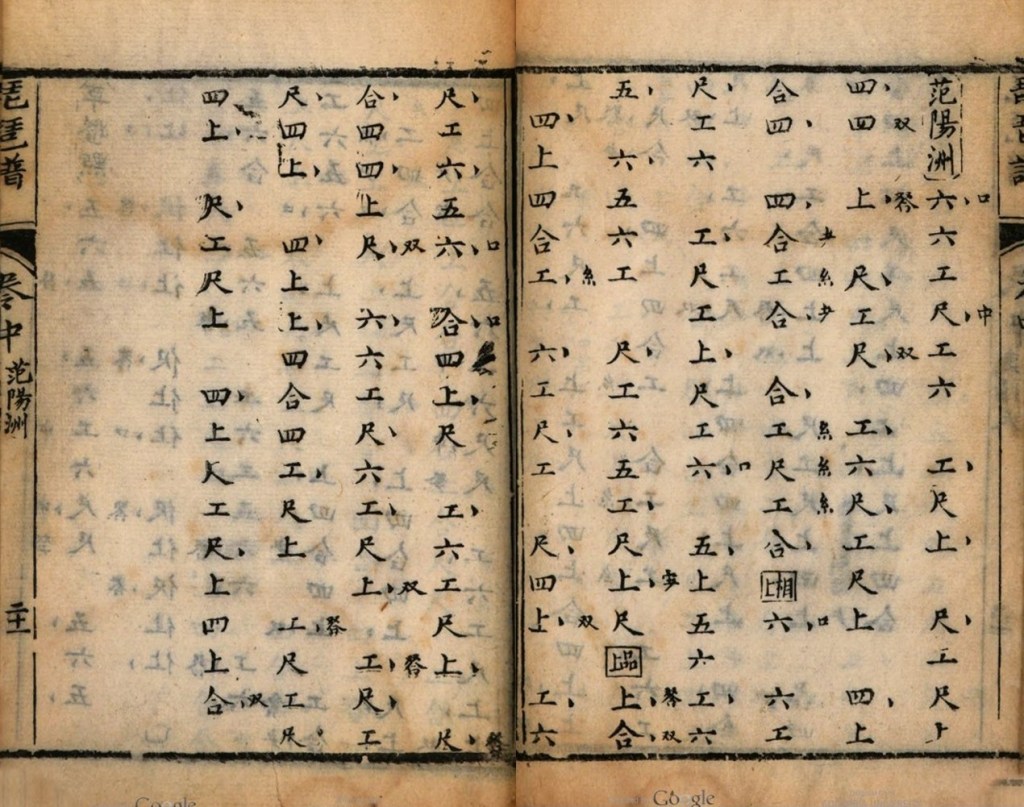 范陽洲 六、口 六 工 尺、中 工 六 工、 尺 上、 尺、 工 尺 上
四、 四 双 上、 尺、 工 尺、双 工、 六 尺、 工 尺 上 四、 上
合 四、 四、 合 工 合 合、 工 尺 工 合、 上相 六、口 六 工
尺、 工 六 工、 尺 上、 尺 工 六、口 五、 上 五 六 工、 六
五、 六 五 六 工 尺、 工 六 五 工、 尺 上、 尺 上品 上、 合、双
四、 上 四 合 工、 六、 工 尺、 工 尺、 四 上、双 工、 六
琵琶譜 卷中 范陽洲
尺、 工 六、 五 六、口 合、口 四 上、 尺 工、 六 工 尺 上、 尺、
合、 四 四、 上 尺、双 六、 六 工 尺、 六 工 尺 上、双 工、 尺、 工
尺、 四 上、 四、 上 上、 四 合 四 工、 尺 上 工、 尺 工 尺
四 上、 尺、 工 尺 上 四、 上 尺 工 尺、 上 四 上 合、双
琵琶譜 卷中 范陽洲
Google
Google